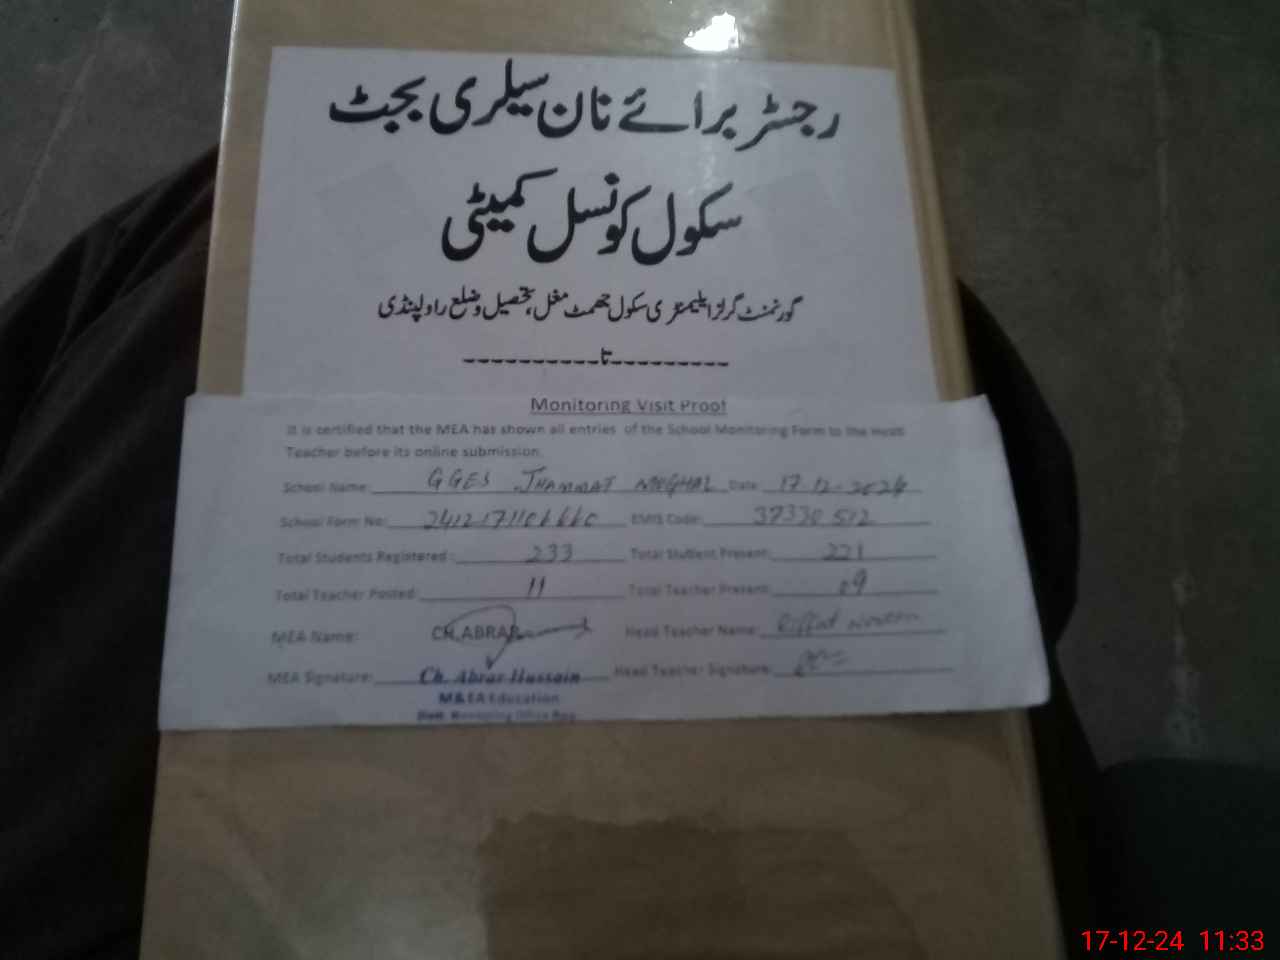 رجسٹر برائے نان سیلری بجٹ
سکول کونسل کمیٹی
گورنمنٹ گرلز ایلیمنٹری سکول جھمٹ مغل، تحصیل و ضلع راولپنڈی
----------تا----------
Monitoring Visit Proof
It is certified that the MEA has shown all entries of the School Monitoring Form to the Head
Teacher before its online submission.
School Name: GGES JHAMMAT MUGHAL Date: 17-12-2024
School Form No: EMIS Code: 37330512
Total Students Registered: 233 Total Student Present: 221
Total Teacher Posted: 11 Total Teacher Present: 09
MEA Name: CH.ABRAR Head Teacher Name: Riffat
MEA Signature: Ch. Abrar Hussain Head Teacher Signature:
M&EA Education
17-12-24 11:33